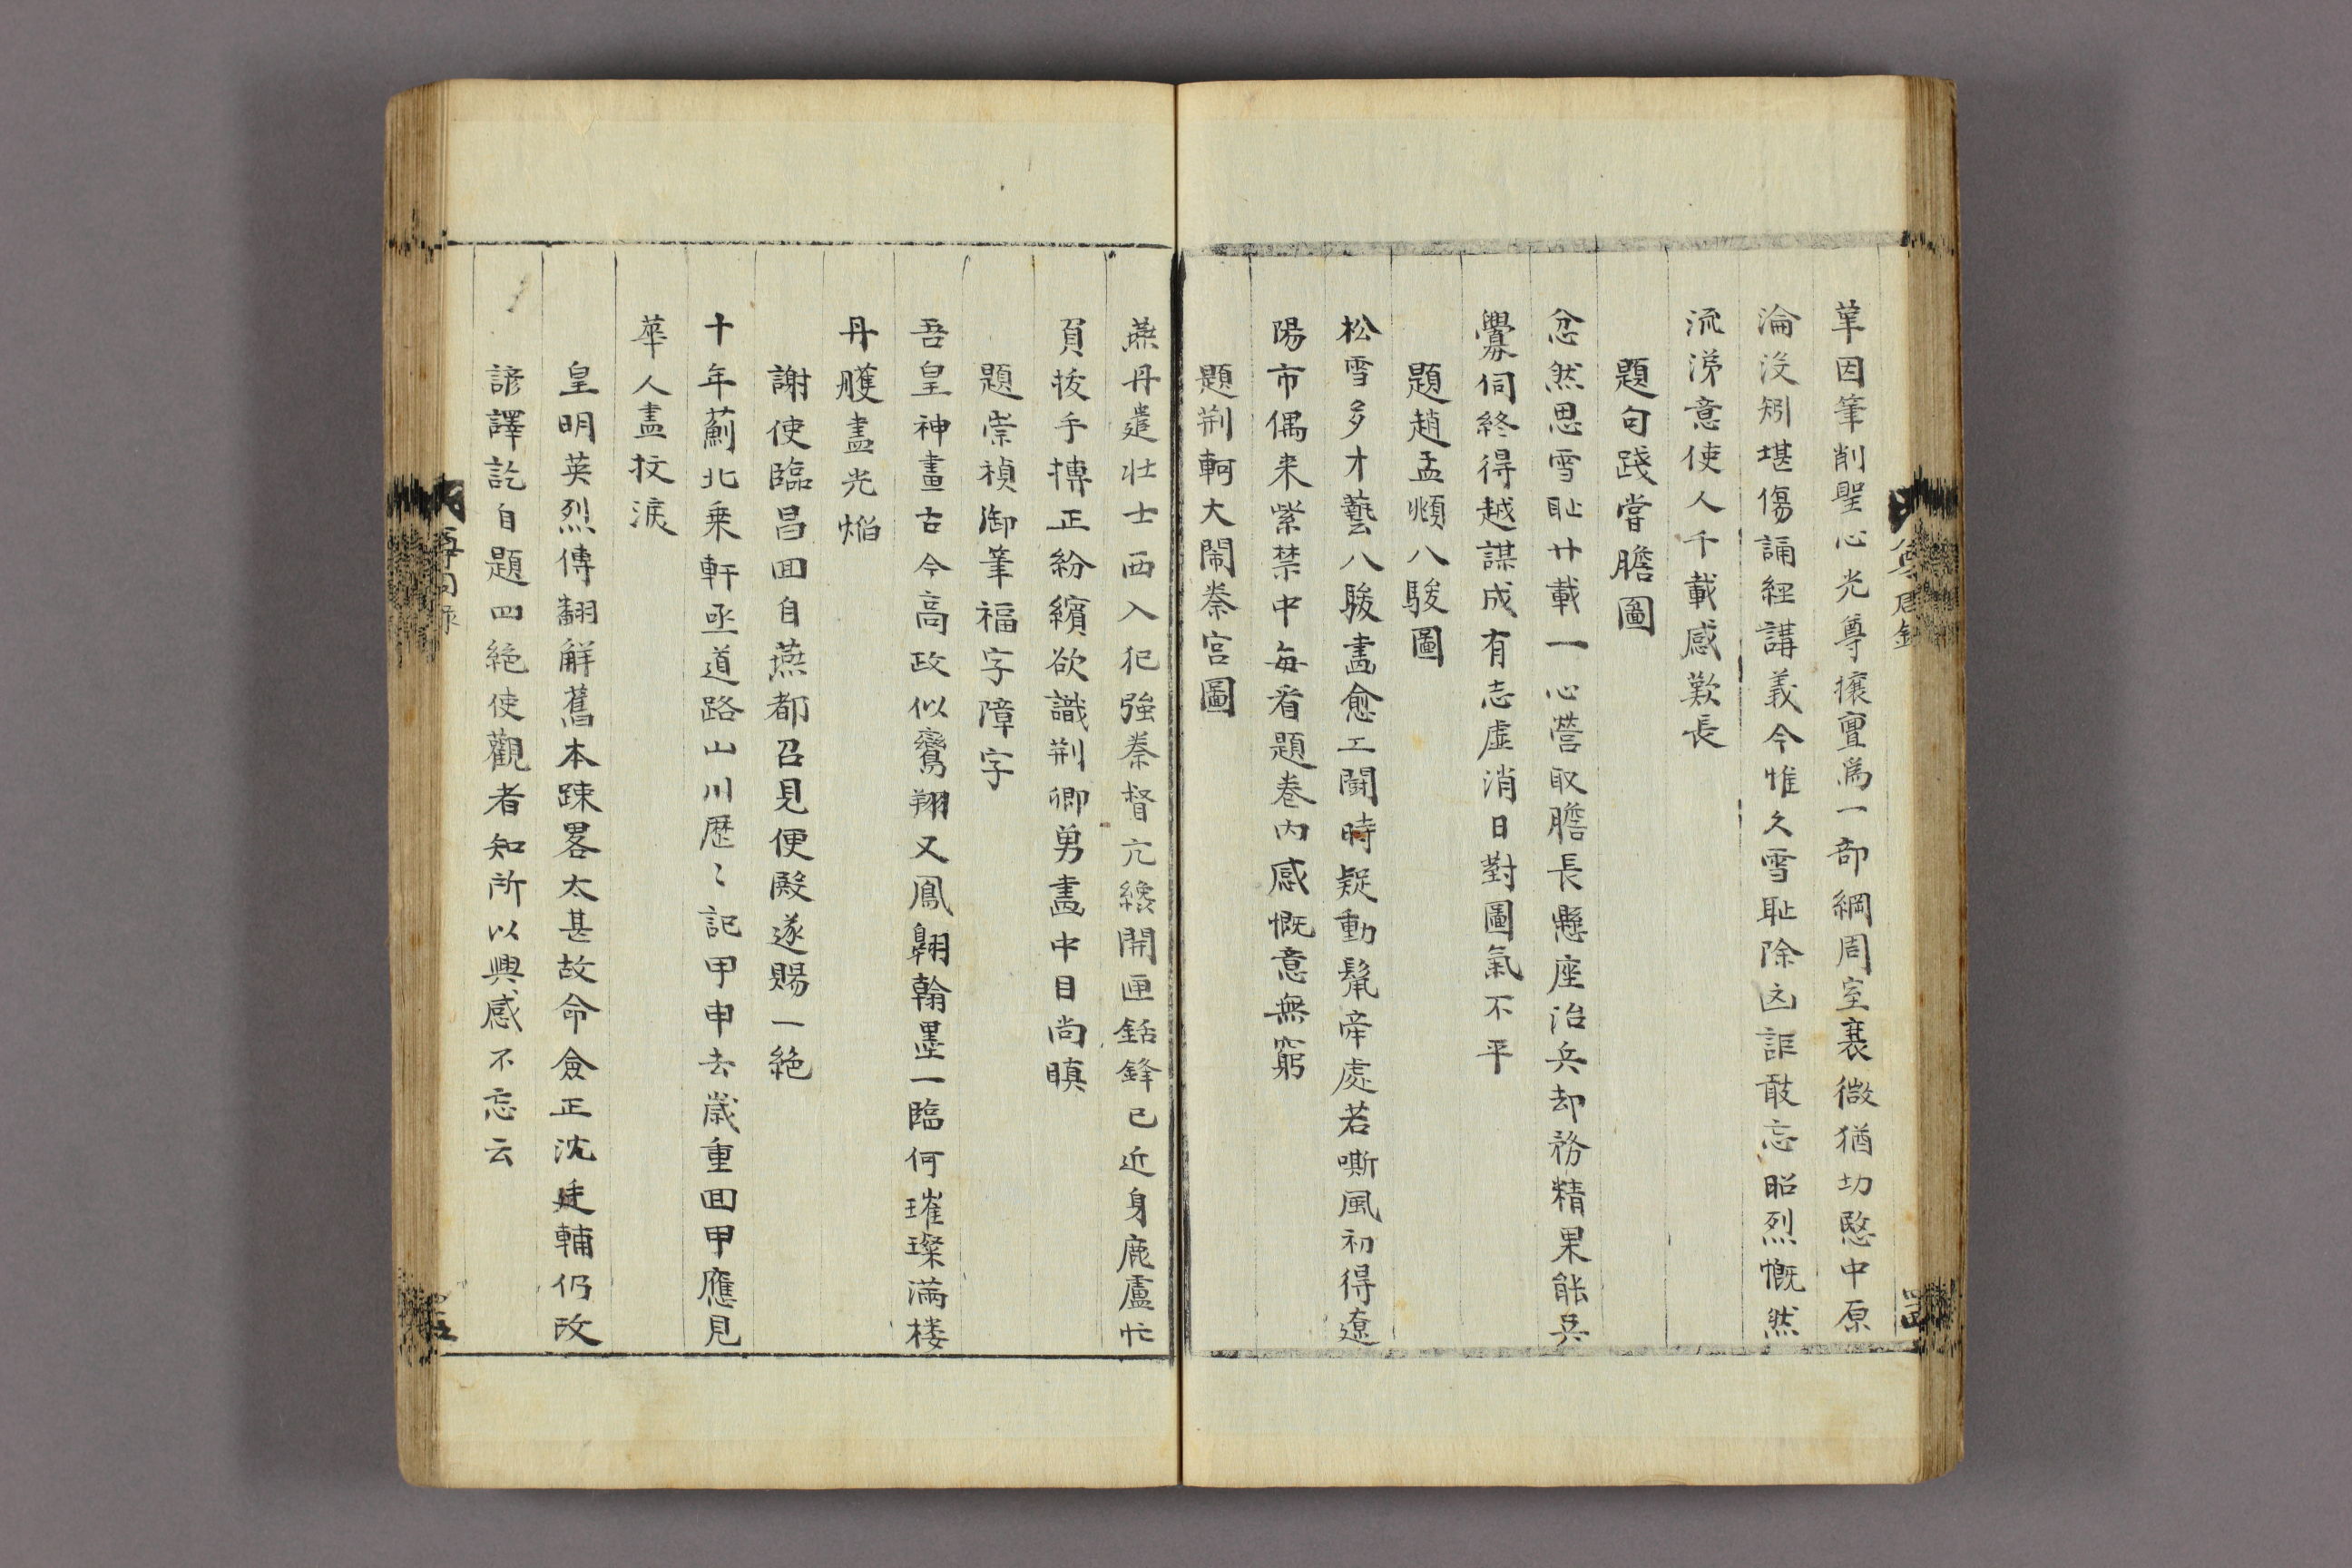 筆因筆削聖心光尊攘亶爲一部綱周室衰微猶切愍中原
淪沒矧堪傷誦經講義今惟久雪耻除凶詎敢忘昭烈慨然
流涕意使人千載感歎長
題句踐嘗膽圖
忿然思雪耻廿載一心營取膽長懸座治兵却務精果能吳
釁伺終得越謀成有志虛消日對圖氣不平
題趙孟頫八駿圖
松雪多才藝八駿畵愈工閾時疑動鬣啼處若嘶風初得遼
陽市偶来紫禁中每看題卷內感慨意無窮
題荆軻大閙秦宮圖
燕丹遣壯士西入犯強秦督亢纔開匣銛鋒已近身鹿盧忙
負拔手搏正紛繽欲識荆卿勇畵中目尚瞋
題崇禎御筆福字障字
吾皇神畫古今高政似鸞翔又鳳翺翰墨一臨何璀璨滿楼
丹雘盡光焰
謝使臨昌囬自燕都召見便殿遂賜一絶
十年薊北乗軒亟道路山川歷〻記甲申去歲重囬甲應見
華人盡抆淚
皇明英烈傳翻觧舊本踈畧太甚故命僉正沈廷輔仍改
諺譯訖自題四絶使觀者知所以興感不忘云